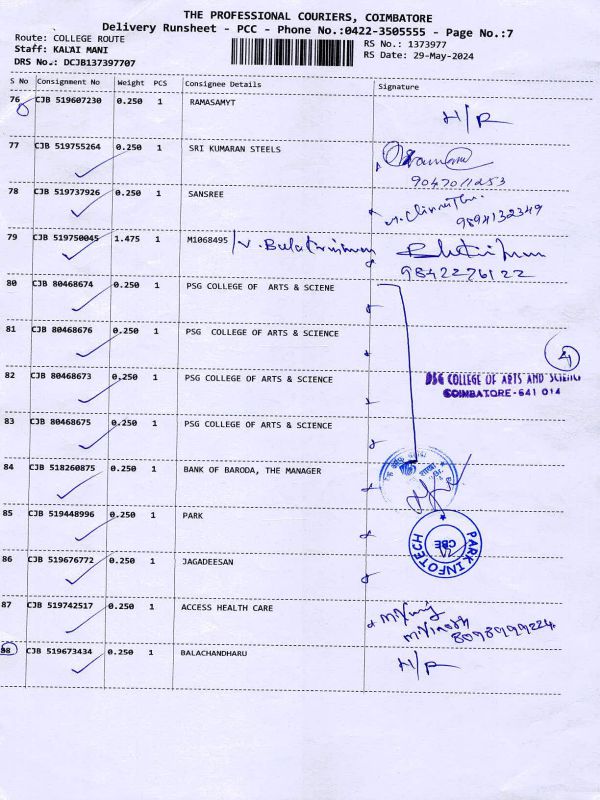 THE PROFESSIONAL COURIERS, COIMBATORE
Delivery Runsheet - PCC - Phone No.:0422-3505555 - Page No.:7
Route: COLLEGE ROUTE
Staff: KALAI MANI
DRS No.: DCJB137397707
RS No.: 1373977
RS Date: 29-May-2024
S No Consignment No Weight PCS Consignee Details Signature
76 CJB 519607230 0.250 1 RAMASAMYT H/R
77 CJB 519755264 0.250 1 SRI KUMARAN STEELS
9047011253
78 CJB 519737926 0.250 1 SANSREE
9894132349
79 CJB 519750045 1.475 1 M1068495 / V. Balakrishnan
9842276122
80 CJB 80468674 0.250 1 PSG COLLEGE OF ARTS & SCIENE
81 CJB 80468676 0.250 1 PSG COLLEGE OF ARTS & SCIENCE
4
82 CJB 80468673 0.250 1 PSG COLLEGE OF ARTS & SCIENCE
PSG COLLEGE OF ARTS AND SCIENCE
COIMBATORE - 641 014
83 CJB 80468675 0.250 1 PSG COLLEGE OF ARTS & SCIENCE
84 CJB 518260875 0.250 1 BANK OF BARODA, THE MANAGER
85 CJB 519448996 0.250 1 PARK
PARK INFOTECH
CBE
86 CJB 519676772 0.250 1 JAGADEESAN
87 CJB 519742517 0.250 1 ACCESS HEALTH CARE
M.Vinoth
8098999224
88 CJB 519673434 0.250 1 BALACHANDHARU H/R